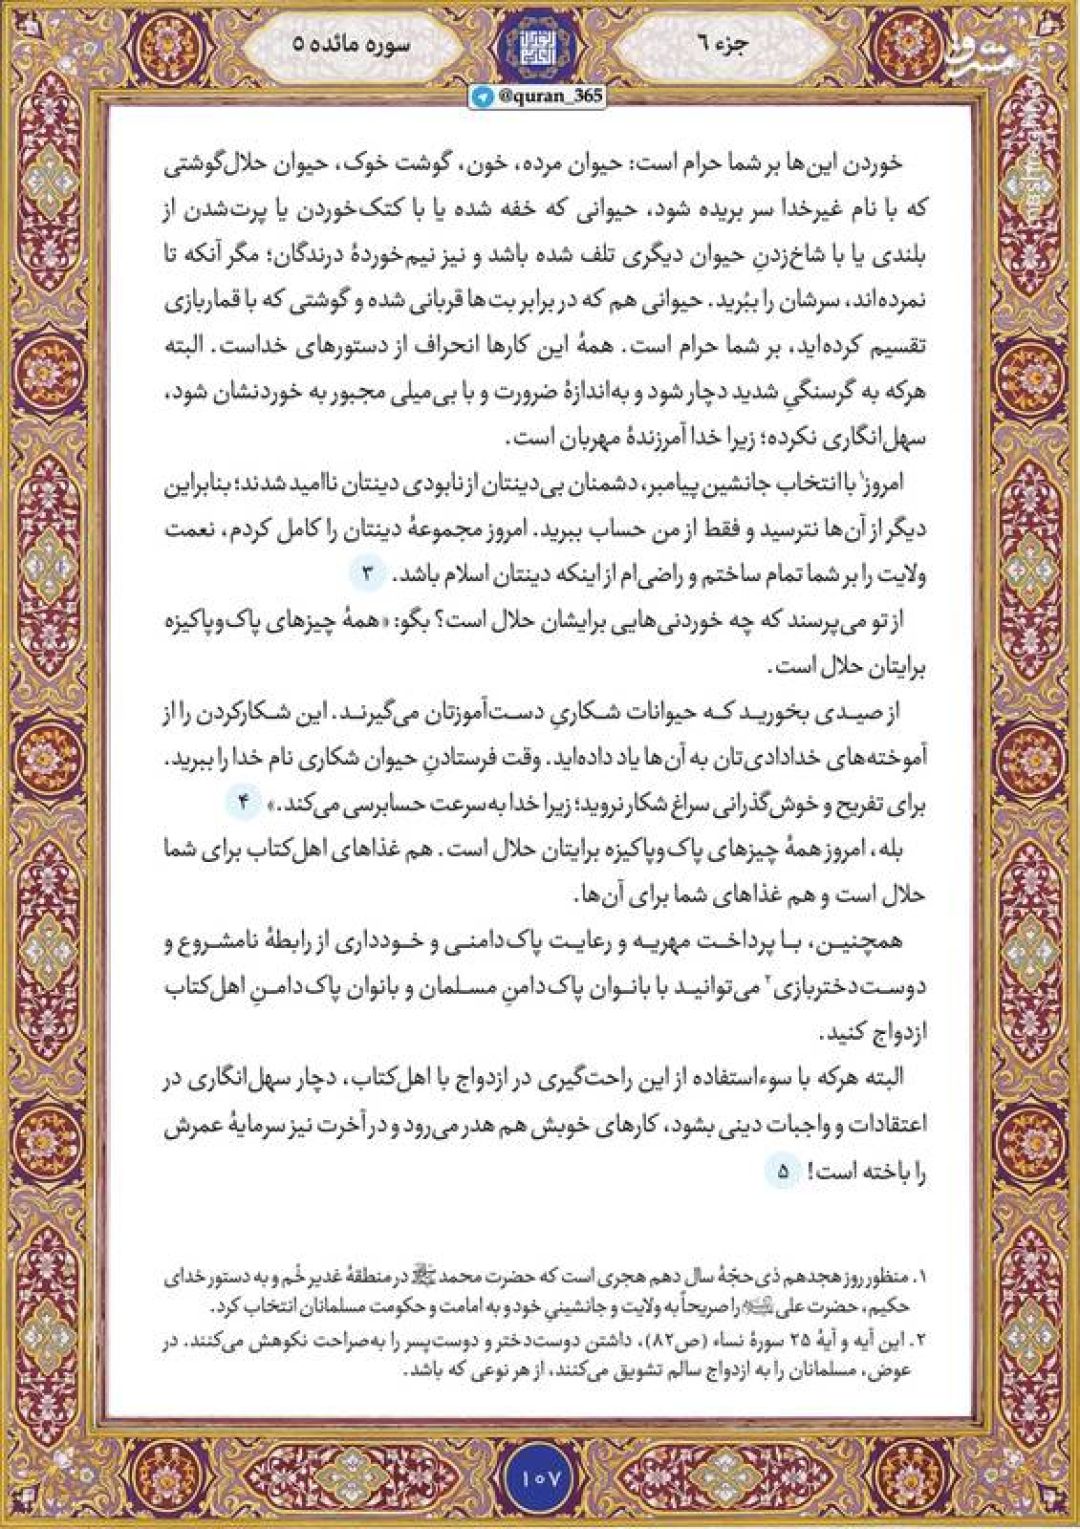 جزء ۶
سوره مائده ۵
مشرق
mashreghnews.ir
@quran_365
خوردن این‌ها بر شما حرام است: حیوان مرده، خون، گوشت خوک، حیوان حلال‌گوشتی
که با نام غیرخدا سر بریده شود، حیوانی که خفه شده یا با کتک‌خوردن یا پرت‌شدن از
بلندی یا با شاخ‌زدنِ حیوان دیگری تلف شده باشد و نیز نیم‌خوردهٔ درندگان؛ مگر آنکه تا
نمرده‌اند، سرشان را ببُرید. حیوانی هم که در برابر بت‌ها قربانی شده و گوشتی که با قماربازی
تقسیم کرده‌اید، بر شما حرام است. همهٔ این کارها انحراف از دستورهای خداست. البته
هرکه به گرسنگیِ شدید دچار شود و به‌اندازهٔ ضرورت و با بی‌میلی مجبور به خوردنشان شود،
سهل‌انگاری نکرده؛ زیرا خدا آمرزندهٔ مهربان است.
امروز۱ با انتخاب جانشین پیامبر، دشمنان بی‌دینتان از نابودی دینتان ناامید شدند؛ بنابراین
دیگر از آن‌ها نترسید و فقط از من حساب ببرید. امروز مجموعهٔ دینتان را کامل کردم، نعمت
ولایت را بر شما تمام ساختم و راضی‌ام از اینکه دینتان اسلام باشد. ۳
از تو می‌پرسند که چه خوردنی‌هایی برایشان حلال است؟ بگو: «همهٔ چیزهای پاک‌وپاکیزه
برایتان حلال است.
از صیدی بخورید که حیوانات شکاریِ دست‌آموزتان می‌گیرند. این شکارکردن را از
آموخته‌های خدادادی‌تان به آن‌ها یاد داده‌اید. وقت فرستادنِ حیوان شکاری نام خدا را ببرید.
برای تفریح و خوش‌گذرانی سراغ شکار نروید؛ زیرا خدا به‌سرعت حسابرسی می‌کند.» ۴
بله، امروز همهٔ چیزهای پاک‌وپاکیزه برایتان حلال است. هم غذاهای اهل‌کتاب برای شما
حلال است و هم غذاهای شما برای آن‌ها.
همچنین، با پرداخت مهریه و رعایت پاک‌دامنی و خودداری از رابطهٔ نامشروع و
دوست‌دختربازی۲ می‌توانید با بانوان پاک‌دامنِ مسلمان و بانوان پاک‌دامنِ اهل‌کتاب
ازدواج کنید.
البته هرکه با سوءاستفاده از این راحت‌گیری در ازدواج با اهل‌کتاب، دچار سهل‌انگاری در
اعتقادات و واجبات دینی بشود، کارهای خوبش هم هدر می‌رود و در آخرت نیز سرمایهٔ عمرش
را باخته است! ۵
۱. منظور روز هجدهم ذی‌حجّهٔ سال دهم هجری است که حضرت محمد ﷺ در منطقهٔ غدیر خُم و به دستور خدای
حکیم، حضرت علی را صریحاً به ولایت و جانشینیِ خود و به امامت و حکومت مسلمانان انتخاب کرد.
۲. این آیه و آیهٔ ۲۵ سورهٔ نساء (ص۸۲)، داشتن دوست‌دختر و دوست‌پسر را به‌صراحت نکوهش می‌کنند. در
عوض، مسلمانان را به ازدواج سالم تشویق می‌کنند، از هر نوعی که باشد.
۱۰۷